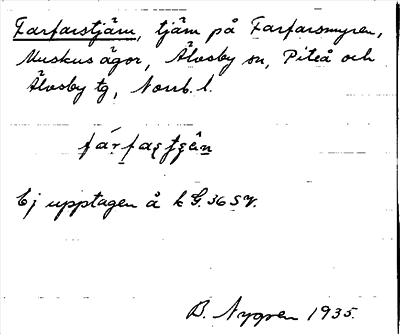 Farfarstjärn, tjärn på Farfarsmyren,
Muskus ägor, Älvsby sn, Piteå och
Älvsby tg, Norrb. l.
Ej upptagen å k G. 36 SV.
B. Nygren 1935.